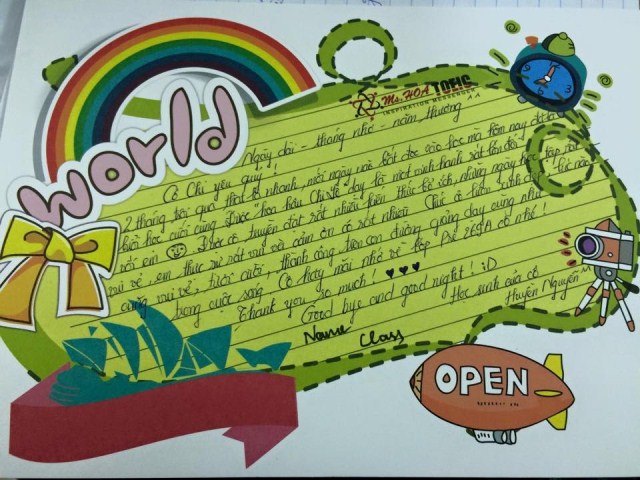 World
Ms. HOA TOEIC
INSPIRATION MESSENGER
Ngày dài - tháng nhớ - năm thương ^^
Cô Chi yêu quý!
2 tháng trôi qua thật là nhanh, mới ngày nào bắt đầu vào học mà hôm nay đã là
buổi học cuối cùng. Được "hoa hậu Chi" dạy là một vinh hạnh rất lớn đối
với em. Được cô truyền đạt rất nhiều kiến thức bổ ích những ngày học tập rất
vui vẻ, em thực sự rất vui và cảm ơn cô rất nhiều. Chúc cô luôn xinh đẹp
cũng vui vẻ, tươi cười, thành công trên con đường giảng dạy cũng như
trong cuộc sống. Cô hãy mãi nhớ về lớp Pre 269A cô nhé!
Thank you so much! ♥♥♥
Good bye and good night! :D
Học sinh của cô
Huyền Nguyễn ^^
Name Class
OPEN